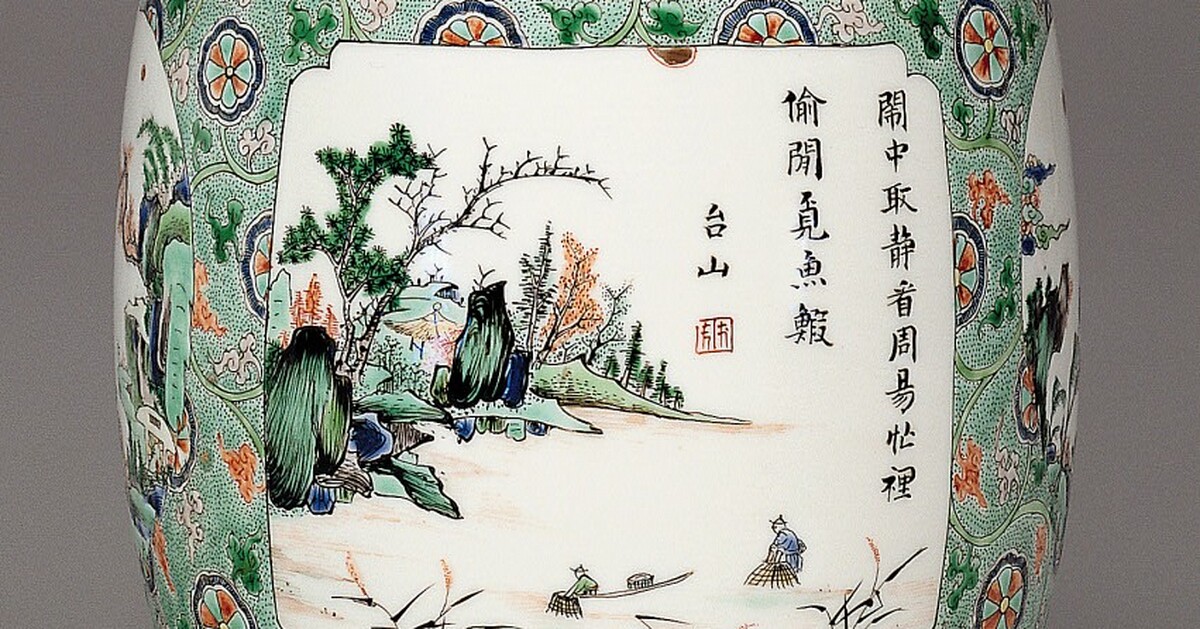 閙中取静看周易忙裡
偷閒覓魚鰕
台山